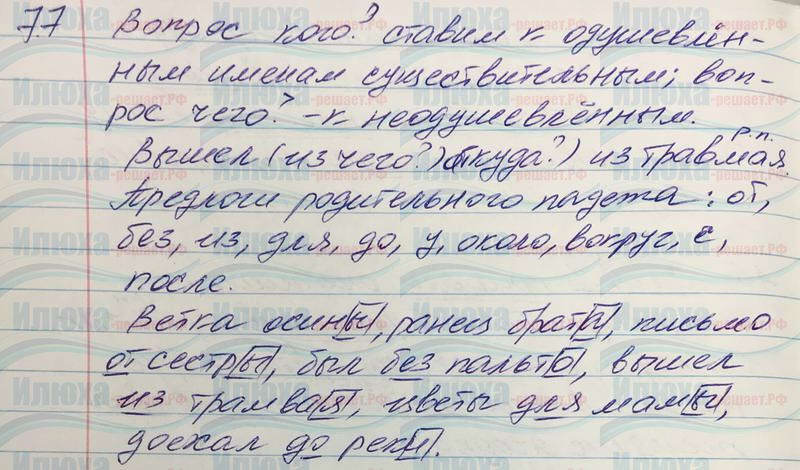 77 Вопрос кого? ставим к одушевлён-
ным именам существительным; воп-
рос чего? – к неодушевлённым.
р.п.
Вышел (из чего?) откуда?) из травмая.
Предлоги родительного падежа: от,
без, из, для, до, у, около, вокруг, с,
после.
Ветка осины, ранец брата, письмо
от сестры, был без пальто, вышел
из трамвая, цветы для мамы,
доехал до реки.
Илюха-решает.РФ